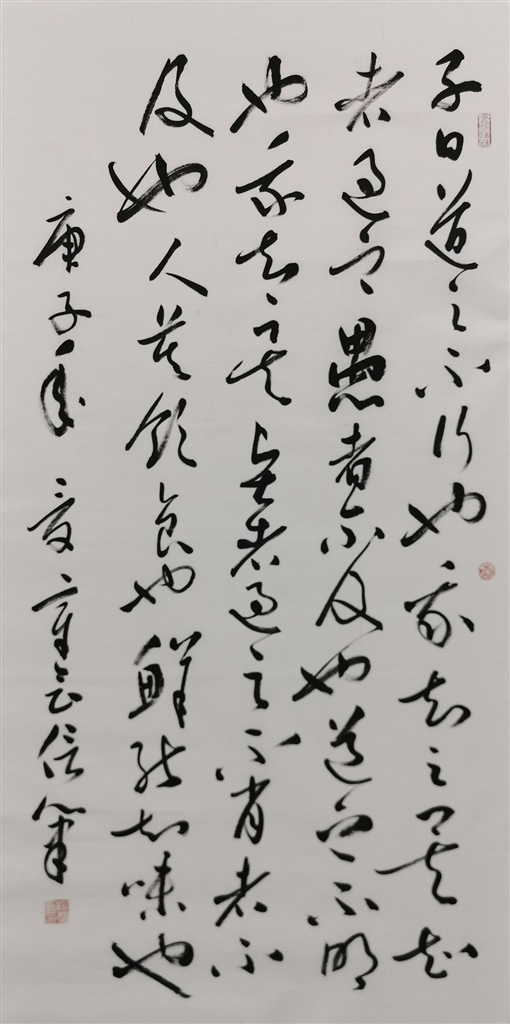 子曰道之不行也我知之矣知
者過之愚者不及也道之不明
也我知之矣賢者過之不肖者不
及也人莫飲食也鮮能知味也
庚子年夏信筆